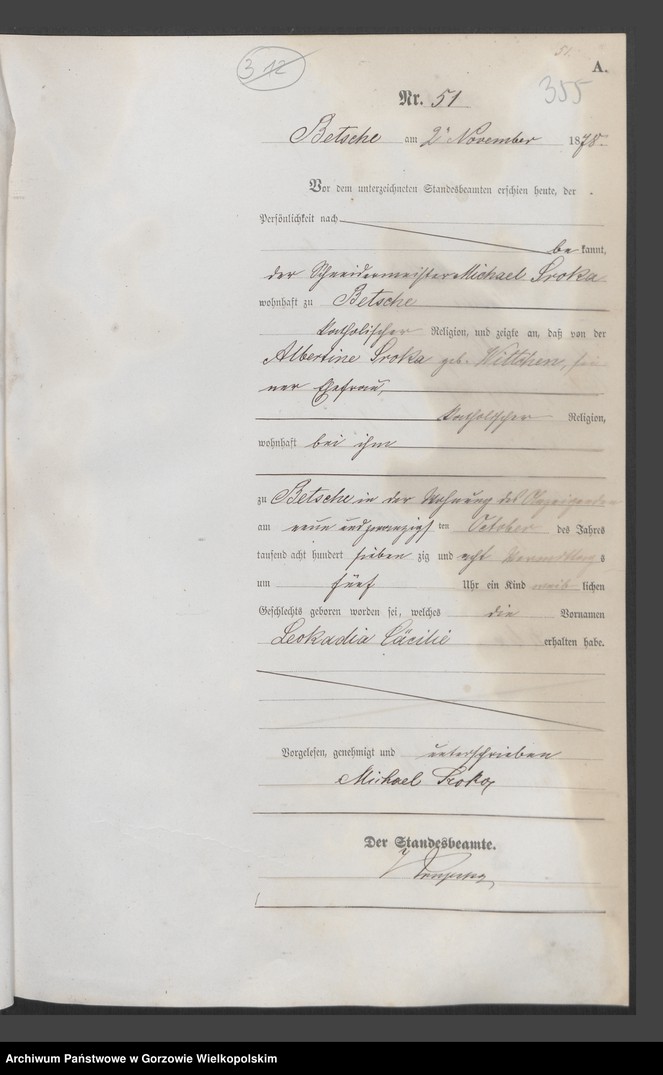 51.
A.
312
355
Nr. 51
Betsche am 2t November 1878
Vor dem unterzeichneten Standesbeamten erschien heute, der
Persönlichkeit nach
be kannt,
der Schneidermeister Michael Sroka
wohnhaft zu Betsche
katholischer Religion, und zeigte an, daß von der
Albertine Sroka geb. Wittchen, sei
ner Ehefrau,
katholischer Religion,
wohnhaft bei ihm
zu Betsche in der Wohnung des Anzeigenden
am neun und zwanzigsten October des Jahres
tausend acht hundert sieben zig und acht Vormittags
um fünf Uhr ein Kind weib lichen
Geschlechts geboren worden sei, welches die Vornamen
Leokadia Cäcilie erhalten habe.
Vorgelesen, genehmigt und unterschrieben
Michael Sroka
Der Standesbeamte.
Archiwum Państwowe w Gorzowie Wielkopolskim